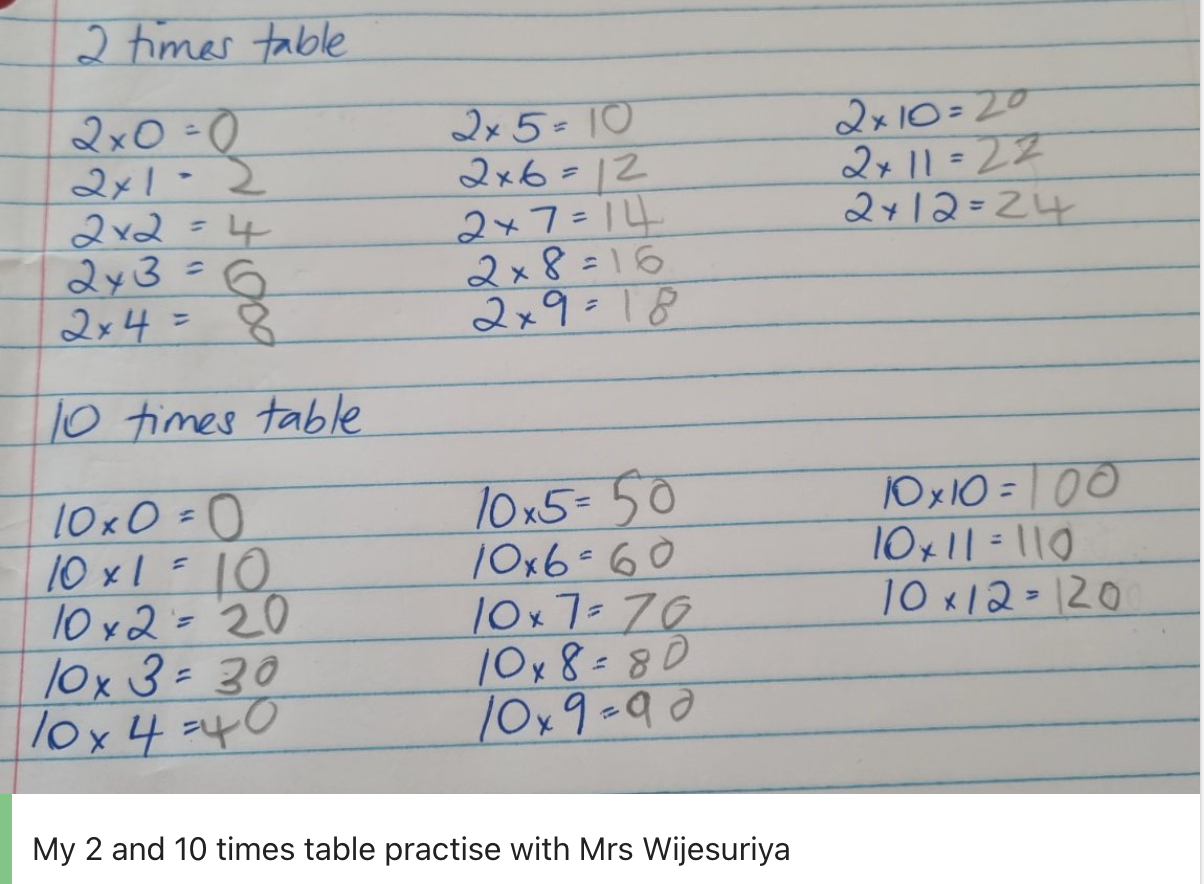 2 times table
2x0 = 0
2x1 - 2
2x2 = 4
2x3 = 6
2x4 = 8
2x5 = 10
2x6 = 12
2x7 = 14
2x8 = 16
2x9 = 18
2x10 = 20
2x11 = 22
2x12 = 24
10 times table
10x0 = 0
10x1 = 10
10x2 = 20
10x3 = 30
10x4 = 40
10x5 = 50
10x6 = 60
10x7 = 70
10x8 = 80
10x9 = 90
10x10 = 100
10x11 = 110
10x12 = 120
My 2 and 10 times table practise with Mrs Wijesuriya